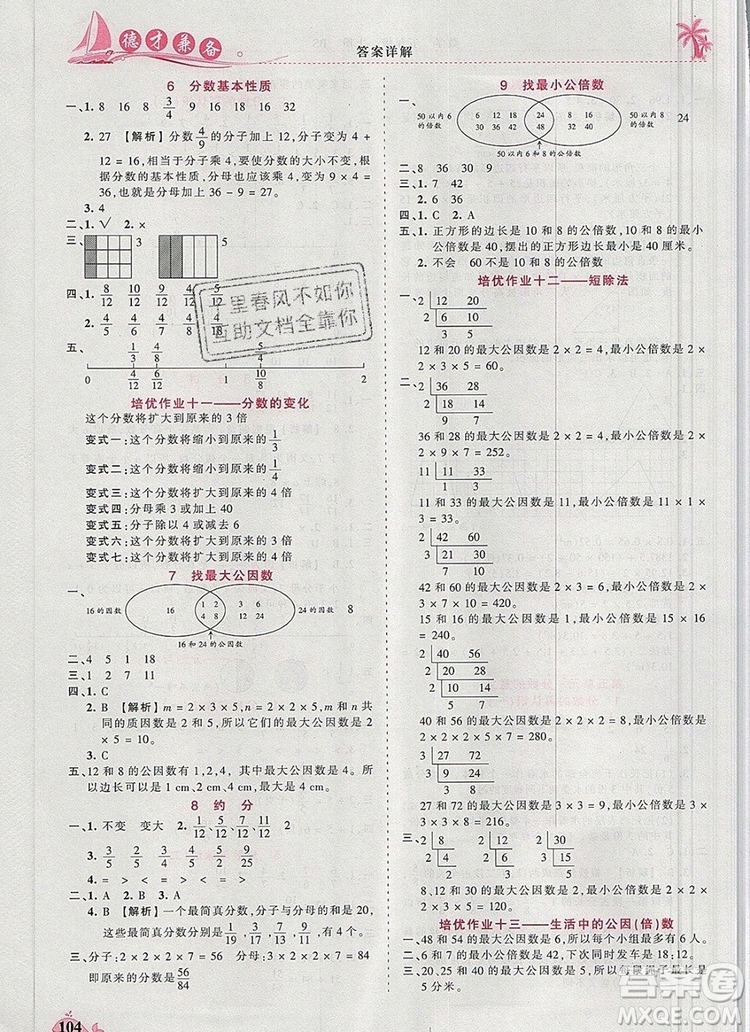 德才兼备
答案详解
6 分数基本性质
一、1. 8 16 8 3/4 9 16 18 16 32
2. 27 【解析】分数4/9的分子加上 12,分子变为 4 +
12 = 16,相当于分子乘 4,要使分数的大小不变,根
据分数的基本性质,分母也应该乘 4,9 × 4 =
36,所以分母加上 36 - 9 = 27。
3. 4
二、1. √ 2. ×
三、 3 5
四、1. 8/10 4/12 12/15 10/12 9/12
2. 8/16 6/16 12/16 10/16
五、 1/3 4/6 5/4
4/12 8/12 15/12
0 1 2
培优作业十一——分数的变化
这个分数将扩大到原来的 3 倍
变式一:这个分数将缩小到原来的1/3
变式二:这个分数将缩小到原来的1/4
变式三:这个分数将扩大到原来的 4 倍
变式四:分母乘 3 或加上 40
变式五:分子除以 4 或减去 6
变式六:这个分数将扩大到原来的 4 倍
变式七:这个分数将扩大到原来的 4 倍
7 找最大公因数
一、 16 的因数 16 1 2 4 8 3 6 12 24 24 的因数 8
16 和 24 的公因数
二、4 5 1 18
三、1 7 6 11 7 19
四、1. C
2. B 【解析】m = 2 × 3 × 5,n = 2 × 2 × 5,m 和 n 共
同的质因数是 2 和 5,所以它们的最大公因数是
2 × 5 = 10。
3. C
五、12 和 8 的公因数有 1,2,4, 其中最大公因数是 4,所
以边长可以是 1 cm,2 cm,4 cm,最大是 4 cm。
8 约 分
一、1. 不变 变大 2. 1/12,5/12,7/12,11/12 2
3. 2/5 3/5 4/5 2/12 5/12 9/12
4. = > = < = >
二、1. A 2. B 3. A
4. B 【解析】一个最简真分数,分子与分母的积是
20,这些最简真分数分别为1/19,3/17,7/13,9/11,有 4 个。
三、分子:140 ÷ (2 + 3) × 2 = 56 分母:140 - 56 = 84
即原来的分数是56/84
104
9 找最小公倍数
一、 50 以内 6 的倍数 6 12 18 30 36 42 24 48 8 16 32 40 50 以内 8 的倍数 24
50 以内 6 和 8 的公倍数
二、8 36 30 9
三、1. 7 42
2. 6 36
四、1. C 2. A
五、1. 正方形的边长是 10 和 8 的公倍数,10 和 8 的最小
公倍数是 40,摆出的正方形边长最小是 40 厘米。
2. 不会 60 不是 10 和 8 的公倍数
培优作业十二——短除法
一、2 12 20
2 6 10
3 5
12 和 20 的最大公因数是 2 × 2 = 4,最小公倍数是 2 ×
2 × 3 × 5 = 60。
二、2 36 28
2 18 14
9 7
36 和 28 的最大公因数是 2 × 2 = 4,最小公倍数是 2 ×
2 × 9 × 7 = 252。
11 11 33
1 3
11 和 33 的最大公因数是 11,最小公倍数是 11 × 1 ×
3 = 33。
2 42 60
3 21 30
7 10
42 和 60 的最大公因数是 2 × 3 = 6,最小公倍数是 2 ×
3 × 7 × 10 = 420。
15 和 16 的最大公因数是 1,最小公倍数是 15 × 16 =
240。
2 40 56
2 20 28
2 10 14
5 7
40 和 56 的最大公因数是 2 × 2 × 2 = 8,最小公倍数是
2 × 2 × 2 × 5 × 7 = 280。
3 27 72
3 9 24
3 8
27 和 72 的最大公因数是 3 × 3 = 9,最小公倍数是 3 ×
3 × 3 × 8 = 216。
三、2 8 10 30 2 30
2
8、10 和 30 的最大公因数是 2,最小公倍数是 2 × 5 ×
3 × 4 = 120。
培优作业十三——生活中的公因(倍)数
一、48 和 54 的最大公因数是 6,所以每个小组最多有 6 人。
二、6 和 7 的最小公倍数是 42,所以这些糖果最少有 42 颗。
三、20、25 和 45 的最大公因数是 5,所以每段绳子最长是
5 分米。
千里春风不如你
互助文档全靠你
答案圈
MXQE.COM